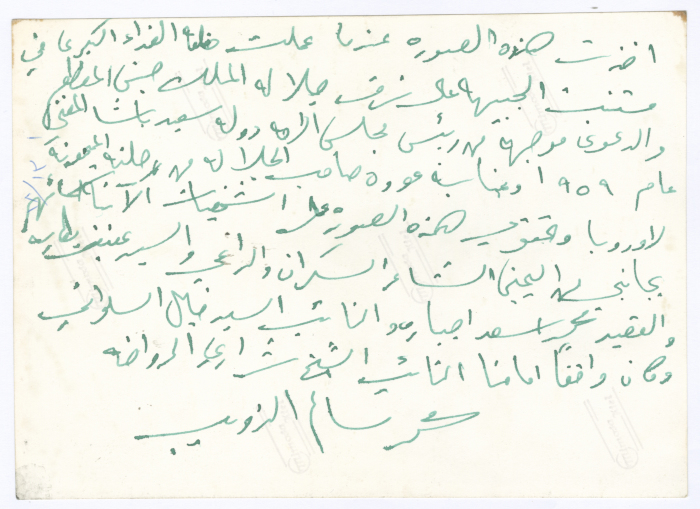 اخذت هذه الصورة عندما عملت حفلة الغداء الكبرى في
الجبيهة على شرف جلالة الملك حسين المعظم
والدعوى موجهة من رئيس مجلس دولة سعيد باشا المفتي
عام ١٩٥٩ وبمناسبة عودة صاحب الجلالة من رحلته الميمونة
لاوروبا وتحتوي هذه الصورة على الشخصيات
بجانبي من اليمين الشاعر السكران والراعي والسيد
والعقيد محمد اسعد والنائب السيد خليل السلواني
وكان واقفاً امامنا النائب الشيخ شراري الرواضه
سالم الذويب